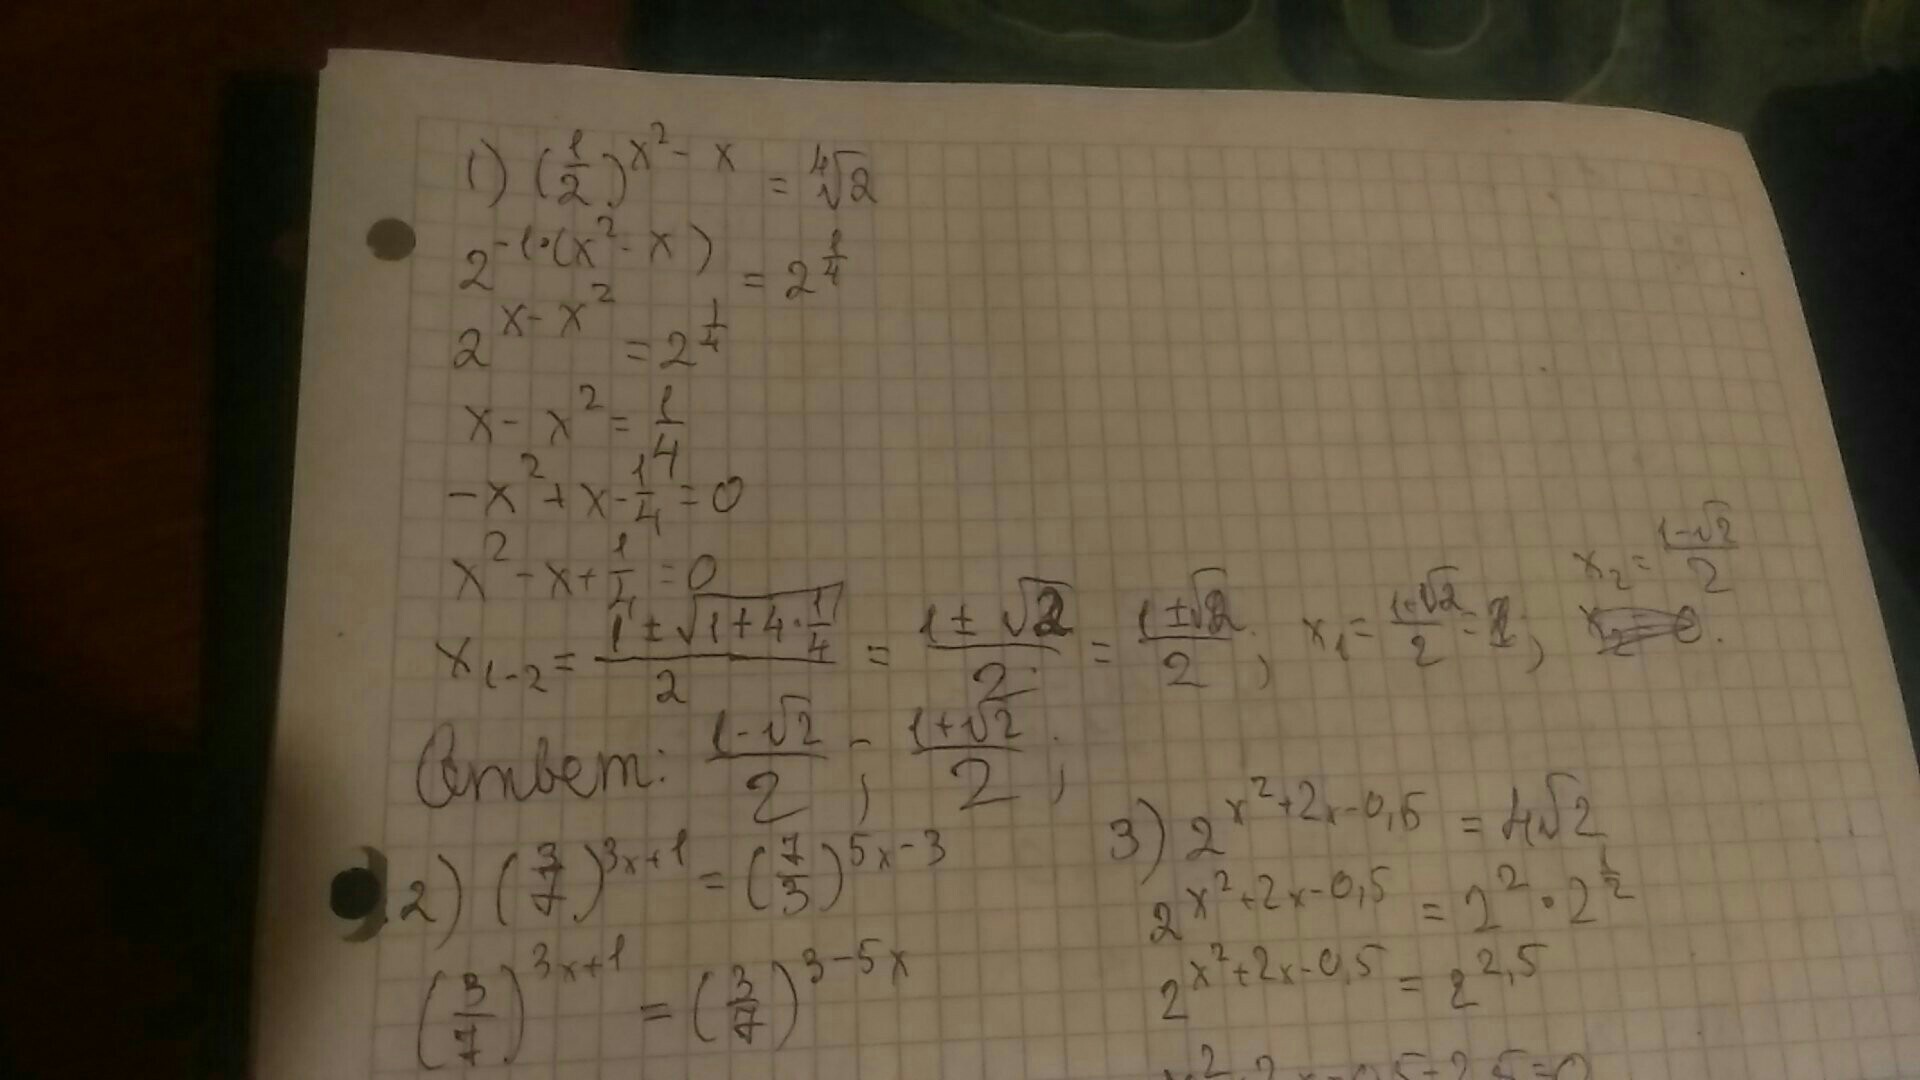 1) (1/2)^(x²-x) = ⁴√2
2^(-1·(x²-x)) = 2^(1/4)
2^(x-x²) = 2^(1/4)
x-x² = 1/4
-x²+x-1/4=0
x²-x+1/4=0
x₁₋₂ = (1±√(1+4·1/4))/2 = (1±√2)/2 = (1±√2)/2; x₁ = (1+√2)/2; x₂ = (1-√2)/2
Ответ: (1-√2)/2; (1+√2)/2;
2) (3/7)^(3x+1) = (7/3)^(5x-3)
(3/7)^(3x+1) = (3/7)^(3-5x)
3) 2^(x²+2x-0,5) = 4√2
2^(x²+2x-0,5) = 2²·2^(1/2)
2^(x²+2x-0,5) = 2^(2,5)